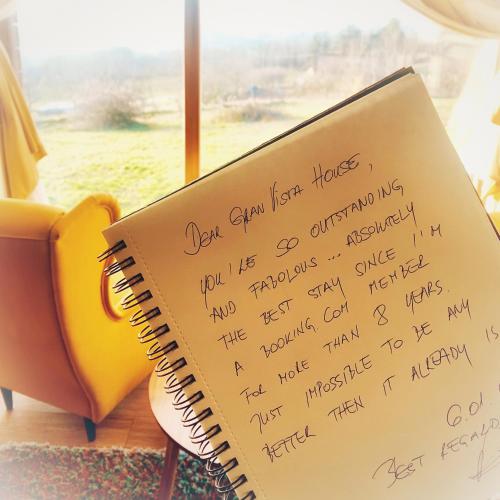 DEAR GRAN VISTA HOUSE,
YOU'RE SO OUTSTANDING,
AND FABOLOUS ... ABSOLUTELY
THE BEST STAY SINCE I'M
A BOOKING.COM MEMBER
FOR MORE THAN 8 YEARS.
JUST IMPOSSIBLE TO BE ANY
BETTER THEN IT ALREADY IS
6.01.
BEST REGARDS